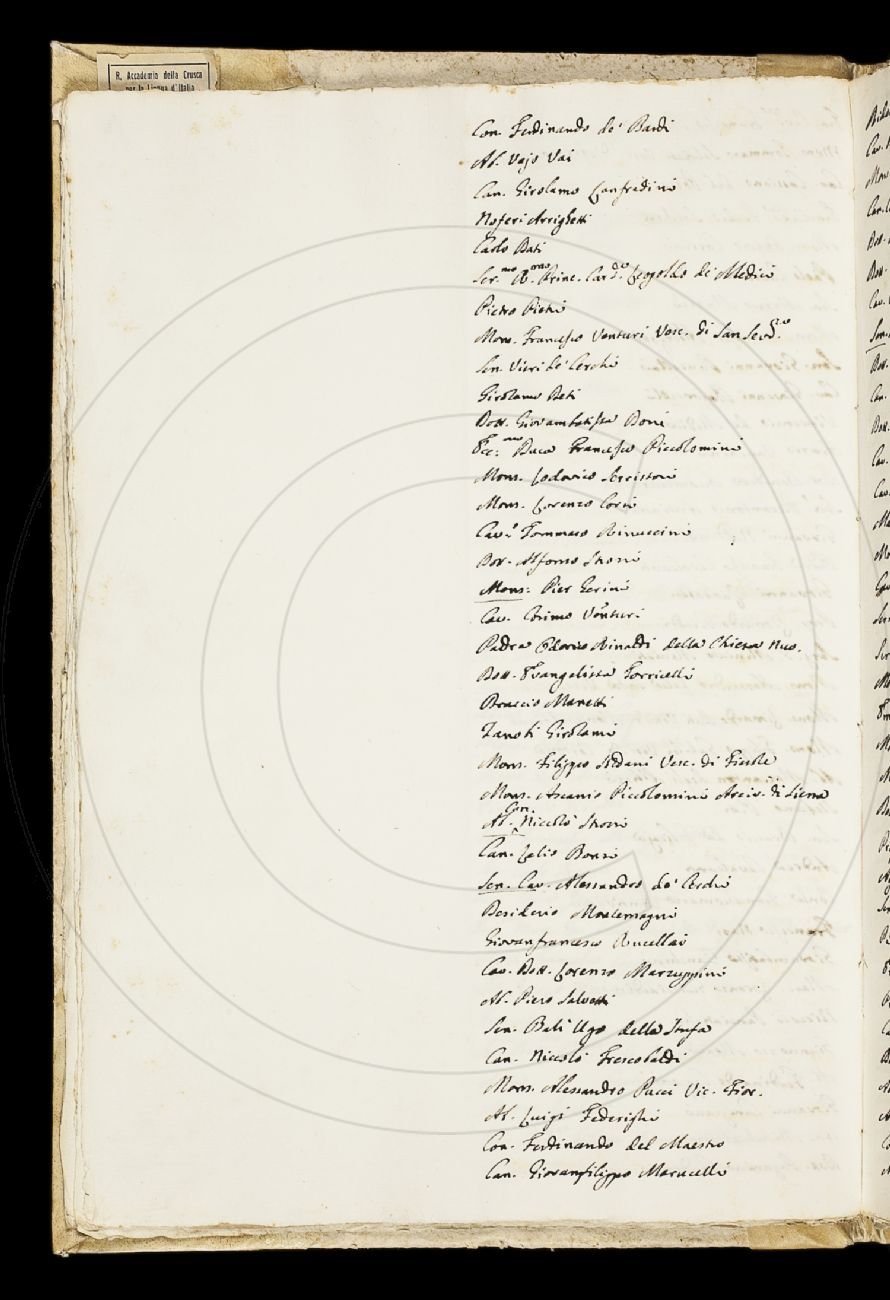 R. Accademia della Crusca
per la Lingua d'Italia
Con. Ferdinando de' Bardi
Ab. Vajo Vai
Can. Girolamo Lanfredini
Noferi Arrighetti
Carlo Dati
Ser.mo R.mo Princ. Card. Leopoldo de' Medici
Pietro Pieri
Mons. Francesco Venturi Vesc. di San Sev.
Sen. Vieri de' Cerchi
Girolamo
Dott. Giovambatista Doni
Ecc.mo Duca Francesco Piccolomini
Mons. Lodovico Serristori
Mons. Lorenzo Corsi
Cav.r Tommaso Rinuccini
Alfonso
Mons: Pier Gerini
Cav. Cosimo Venturi
Padre Odorico Rinaldi della Chiesa Nuo.
Dott. Evangelista Torricelli
Braccio Manetti
Zanobi Girolami
Mons. Filippo Soldani Vesc. di Fiesole
Mons. Ascanio Piccolomini Arciv. di Siena
Ab. Con. Niccolò Strozzi
Can. Lelio Bonsi
Sen. Cav. Alessandro de' Cerchi
Desiderio Montemagni
Giovanfrancesco Rucellai
Cav. Dott. Lorenzo Marzuppini
Ab. Piero Salvetti
Sen. Balì Ugo della Stufa
Can. Niccolò Frescobaldi
Mons. Alessandro Pucci Vic. Fior.
Ab. Luigi Federighi
Con. Ferdinando del Maestro
Can. Giovanfilippo Marucelli